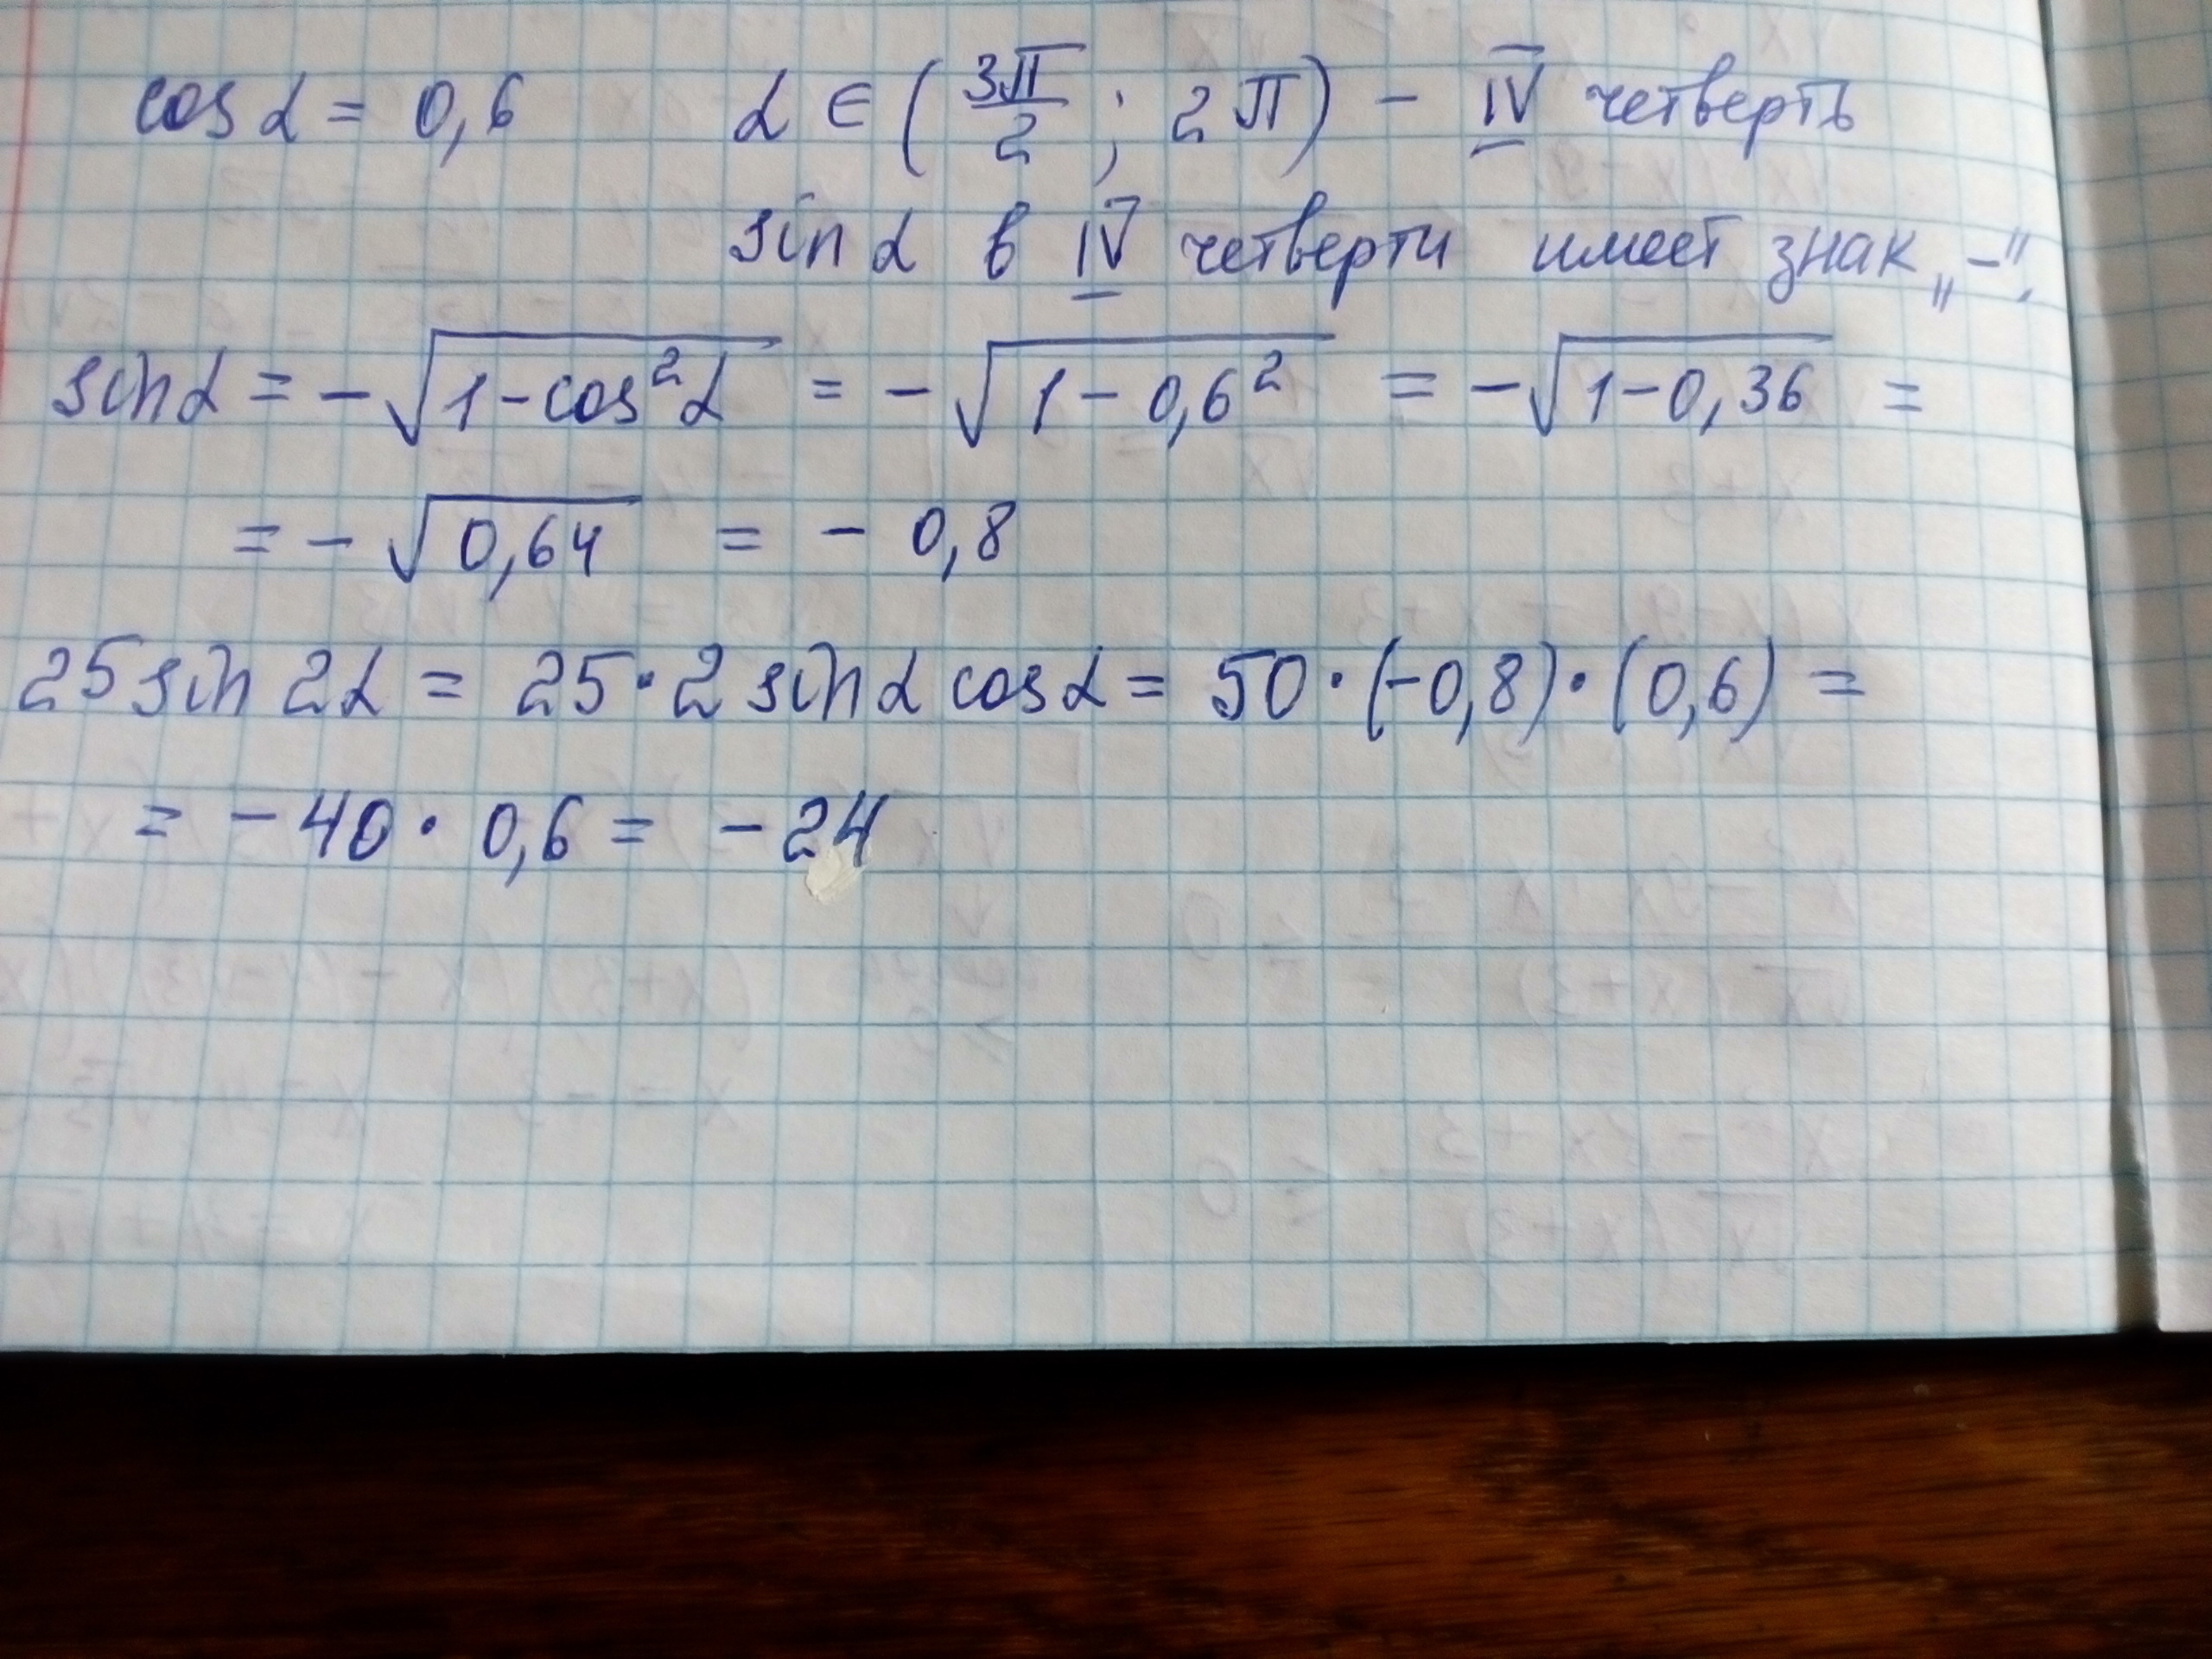 cos α = 0,6 α ∈ (3π/2 ; 2π) – IV четверть
sin α в IV четверти имеет знак „–“.
sin α = –√(1–cos²α) = –√(1 – 0,6²) = –√(1–0,36) =
= – √0,64 = – 0,8
25 sin 2α = 25 · 2 sin α cos α = 50 · (–0,8) · (0,6) =
= – 40 · 0,6 = – 24